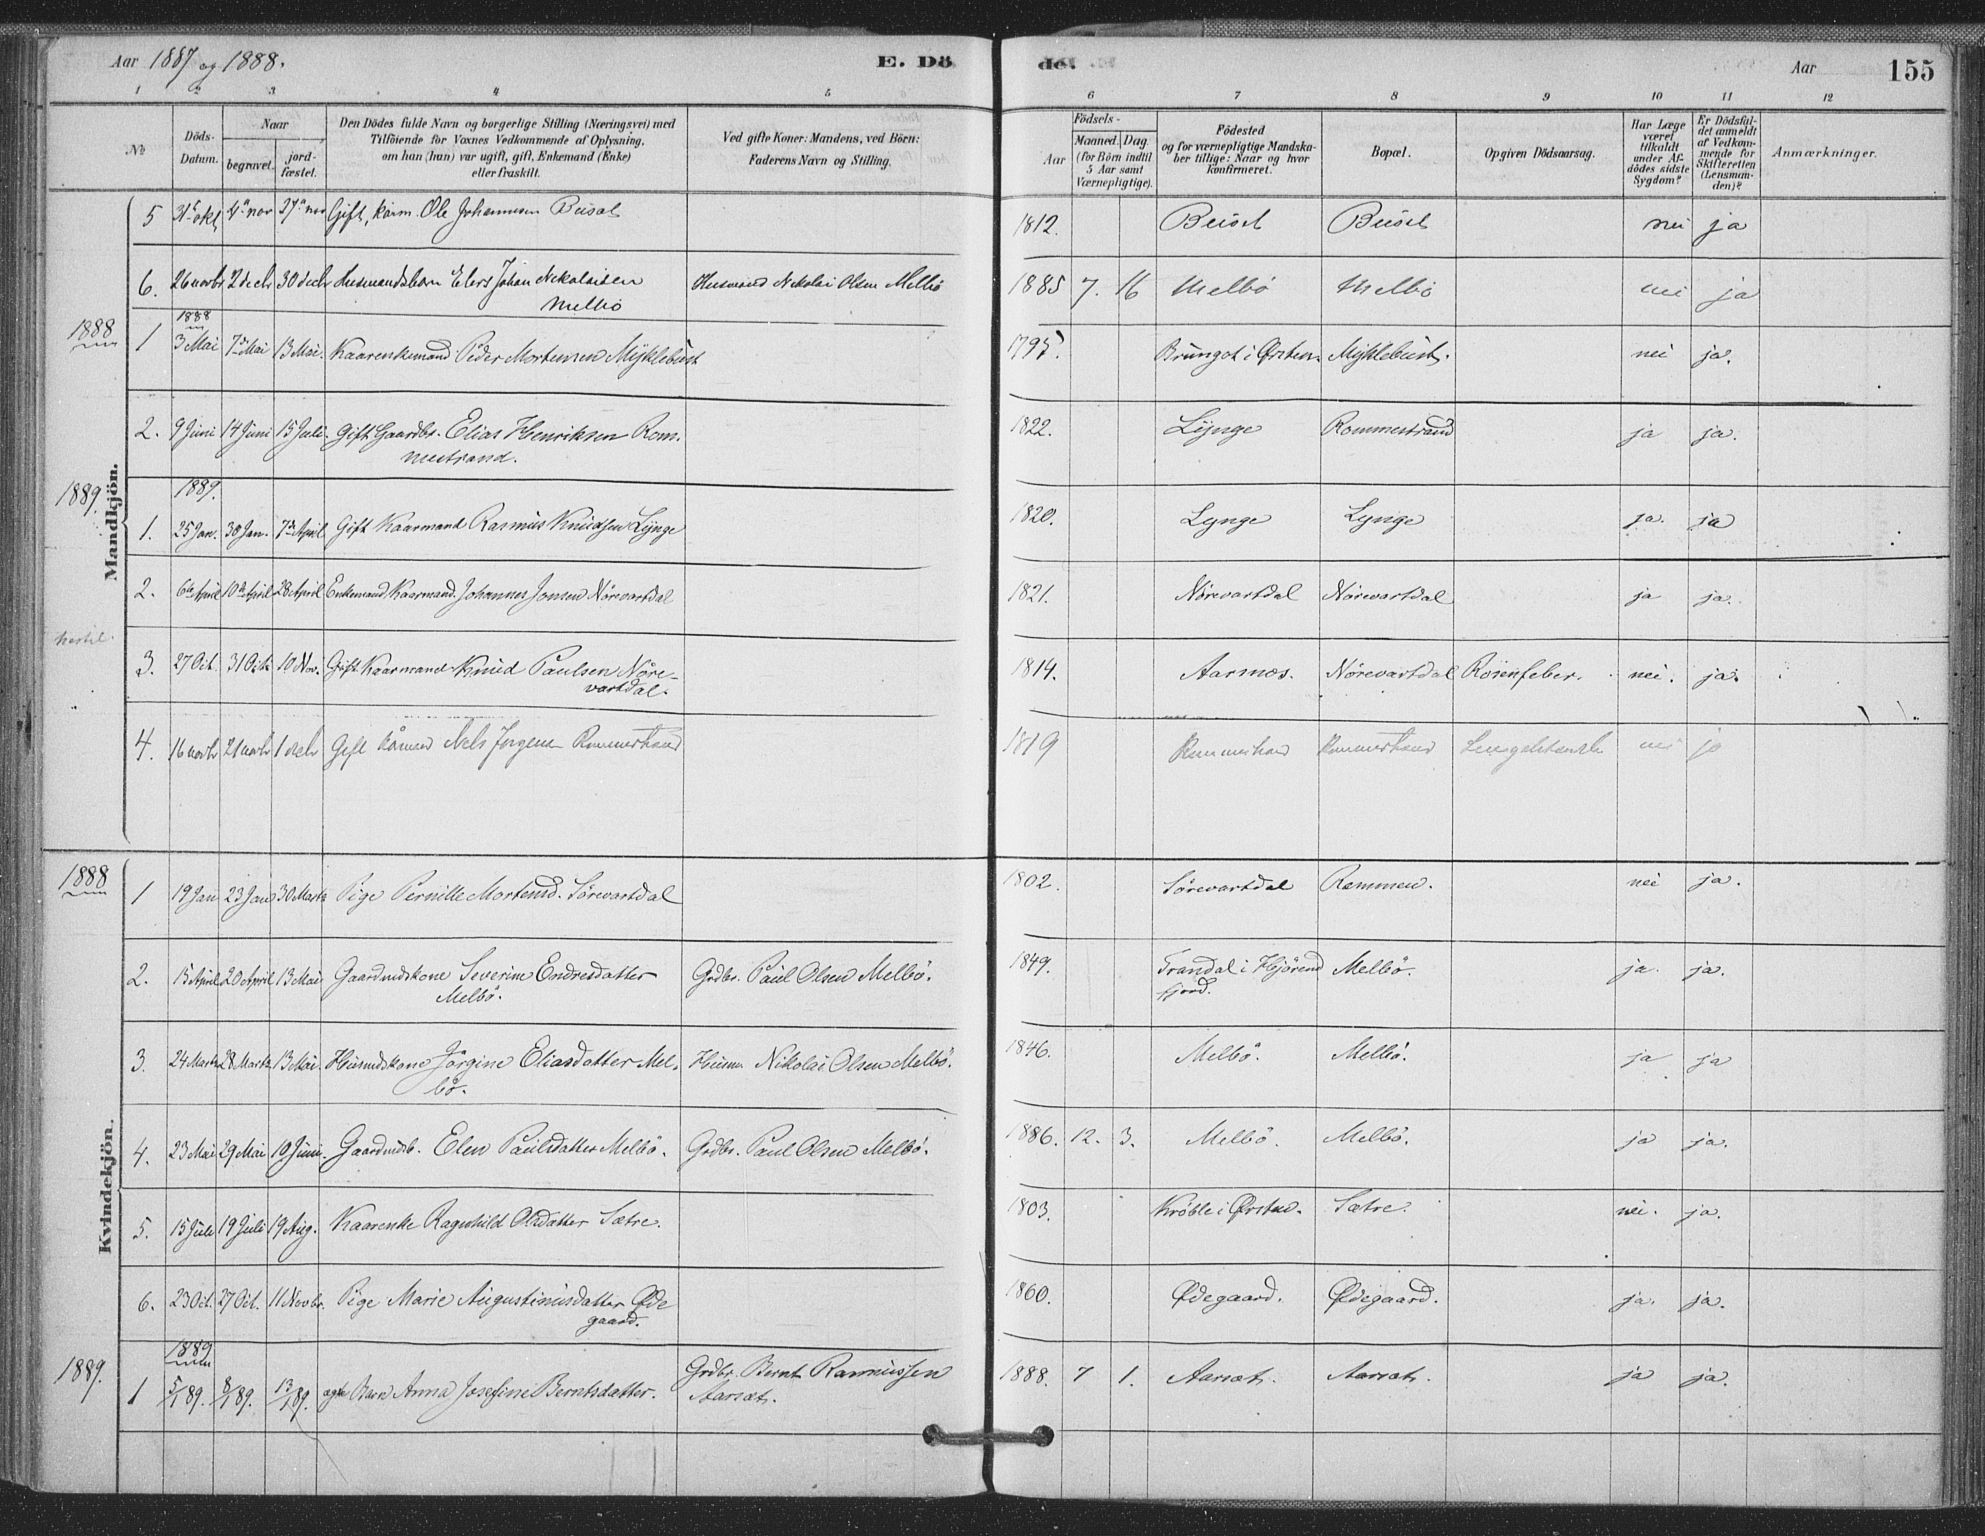 Aar 1887 og 1888.
E. Dö
de.
Aar
155
1 2 3 4 5 6 7 8 9 10 11 12
No
Döds-
Datum.
Naar
begravet.
jord-
fæstet.
Den Dödes fulde Navn og borgerlige Stilling (Næringsvei) med
Tilföiende for Voxnes Vedkommende af Oplysning,
om han (hun) var ugift, gift, Enkemand (Enke)
eller fraskilt.
Ved gifte Koner: Mandens, ved Börn:
Faderens Navn og Stilling.
Födsels-
Aar
Maaned. Dag.
(for Börn indtil
5 Aar samt
Værnepligtige).
Födested
og for værnepligtige Mandska-
ber tillige: Naar og hvor
konfirmeret.
Bopæl.
Opgiven Dödsaarsag.
Har Læge
været
tilkaldt
under Af-
dödes sidste
Sygdom?
Er Dödsfal-
det anmeldt
af Vedkom-
mende for
Skifteretten
(Lensman-
den)?
Anmærkninger.
Mandkjön.
5 31te okt 4de nov 27de nov Gift, kaarm. Ole Johannesen Busæt 1812. Buset Buset nei ja
6. 26 novbr 2 decbr 30 decbr Husmandsbarn Elers Johan Nikolaisen
Melbö
Husmand Nikolai Olsen Melbö 1885 7. 16 Melbö Melbö nei ja
1888
1888
1 3 Mai 7de Mai 13 Mai. Kaarenkemand Peder Mortensen Myklebust 1795. Brungot i Ørsten. Myklebust. nei ja.
2. 9 Juni 14 Juni 15 Juli. Gift Gaardbr. Elias Henriksen Rom-
mestrand.
1822. Lynge Rommestrand ja ja.
1889.
1889.
1. 25 Jan. 30 Jan. 7de April Gift Kaarmand Rasmus Knudsen Lynge 1820. Lynge Lynge ja. ja
2. 6te April 10de April 28 April Enkemand Kaarmand. Johannes Jonsen Nörevartdal 1821. Nörevartdal Nörevartdal ja ja.
3. 27 Oct. 31 Octb 10 Nov. Gift Kaarmand Knud Paulsen Nöre-
vartdal.
1814. Aarnæs. Nörevartdal Rosenfeber. nei. ja.
4. 16 novbr 21 novbr 1 decbr Gift Kårmd Nels Jørgensen Rommestrand 1819 Rommestrand Rommestrand nei ja
Kvindekjön.
1888
1 19 Jan 23 Jan 30 Marts Pige Pernille Mortensd. Sörevartdal 1802. Sörevartdal Rammen. nei ja.
2. 15 April 20 April 13 Mai Gaardmdskone Severine Endresdatter
Melbö.
Grdbr. Paul Olsen Melbö. 1849. Trandal i Hjörend
fjord.
Melbö. ja. ja.
3. 24 Marts 28 Marts 13 Mai. Husmdskone Jörgine Eliasdatter Mel-
bö.
Husm. Nikolai Olsen Melbö. 1846. Melbö. Melbö. ja ja
4. 23 Mai 29 Mai 10 Juni. Gaardmdsb. Elen Paulsdatter Melbö. Grdbr. Paul Olsen Melbö. 1886. 12. 3. Melbö. Melbö. ja ja.
5. 15 Juli 19 Juli 19 Aug. Kaarenke Ragnhild Olsdatter Sætre. 1803. Kröble i Ørsten. Sætre. nei. ja.
6. 23 Oct. 27 Oct. 11 Novbr. Pige Marie Augustinusdatter Øde
gaard.
1860. Ødegaard. Ødegaard. ja. ja.
1889.
1889
1 5/1 89. 8/1 89. 13/1 89. ægte Barn Anna Josefine Berntsdatter. Grdbr. Bernt Rasmussen
Aarsæt.
1888. 7 1. Aarsæt. Aarsæt. ja ja.